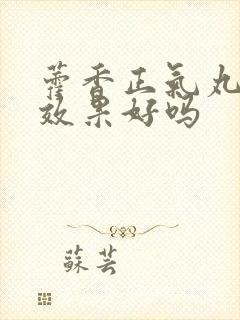 藿香正氣丸
效果好吗
蘇芸